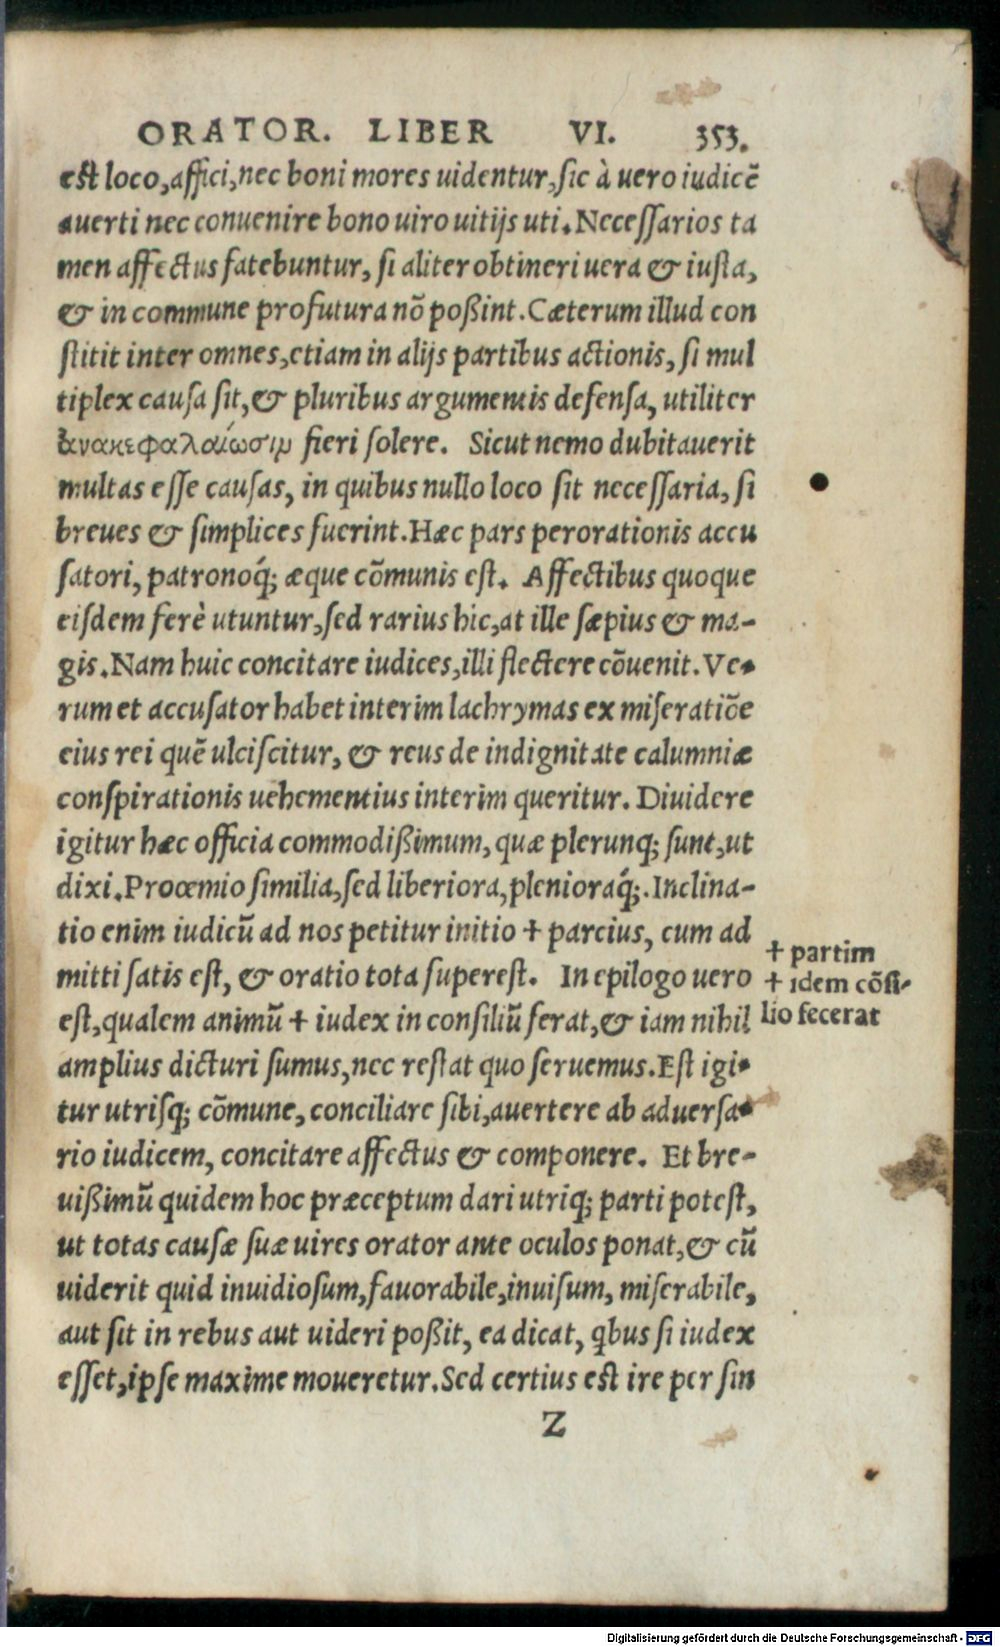 ORATOR. LIBER VI. 353.
est loco, affici, nec boni mores uidentur, sic à uero iudicē
auerti nec conuenire bono uiro uitijs uti. Necessarios ta
men affectus fatebuntur, si aliter obtineri uera & iusta,
& in commune profutura nō poßint. Cæterum illud con
stitit inter omnes, etiam in alijs partibus actionis, si mul
tiplex causa sit, & pluribus argumentis defensa, utiliter
ἀνακεφαλαίωσιμ fieri solere. Sicut nemo dubitauerit
multas esse causas, in quibus nullo loco sit necessaria, si
breues & simplices fuerint. Hæc pars perorationis accu
satori, patronoq́; æque cōmunis est. Affectibus quoque
eisdem ferè utuntur, sed rarius hic, at ille sæpius & ma-
gis. Nam huic concitare iudices, illi flectere cōuenit. Ve-
rum et accusator habet interim lachrymas ex miseratiōe
eius rei quē ulciscitur, & reus de indignitate calumniæ
conspirationis uehementius interim queritur. Diuidere
igitur hæc officia commodißimum, quæ plerunq; sunt, ut
dixi. Proœmio similia, sed liberiora, plenioraq́;. Inclina-
tio enim iudicū ad nos petitur initio + parcius, cum ad
mitti satis est, & oratio tota superest. In epilogo uero
est, qualem animū + iudex in consiliū ferat, & iam nihil
amplius dicturi sumus, nec restat quo seruemus. Est igi-
tur utrisq; cōmune, conciliare sibi, auertere ab aduersa-
rio iudicem, concitare affectus & componere. Et bre-
uißimū quidem hoc præceptum dari utriq; parti potest,
ut totas causæ suæ uires orator ante oculos ponat, & cū
uiderit quid inuidiosum, fauorabile, inuisum, miserabile,
aut sit in rebus aut uideri poßit, ea dicat, qbus si iudex
esset, ipse maxime moueretur. Sed certius est ire per sin
Z
+ partim
+ idem cōsi-
lio fecerat
Digitalisierung gefördert durch die Deutsche Forschungsgemeinschaft - DFG